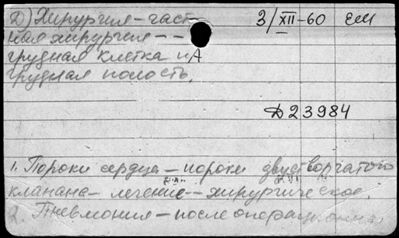 2) Хирургия - част-
ная хирургия - -
грудная клетка и
грудная полость.
3/XII-60
Д23984
1. Пороки сердца - пороки двустворчатого
клапана - лечение - хирургическое.
2. Пневмония - послеоперационная